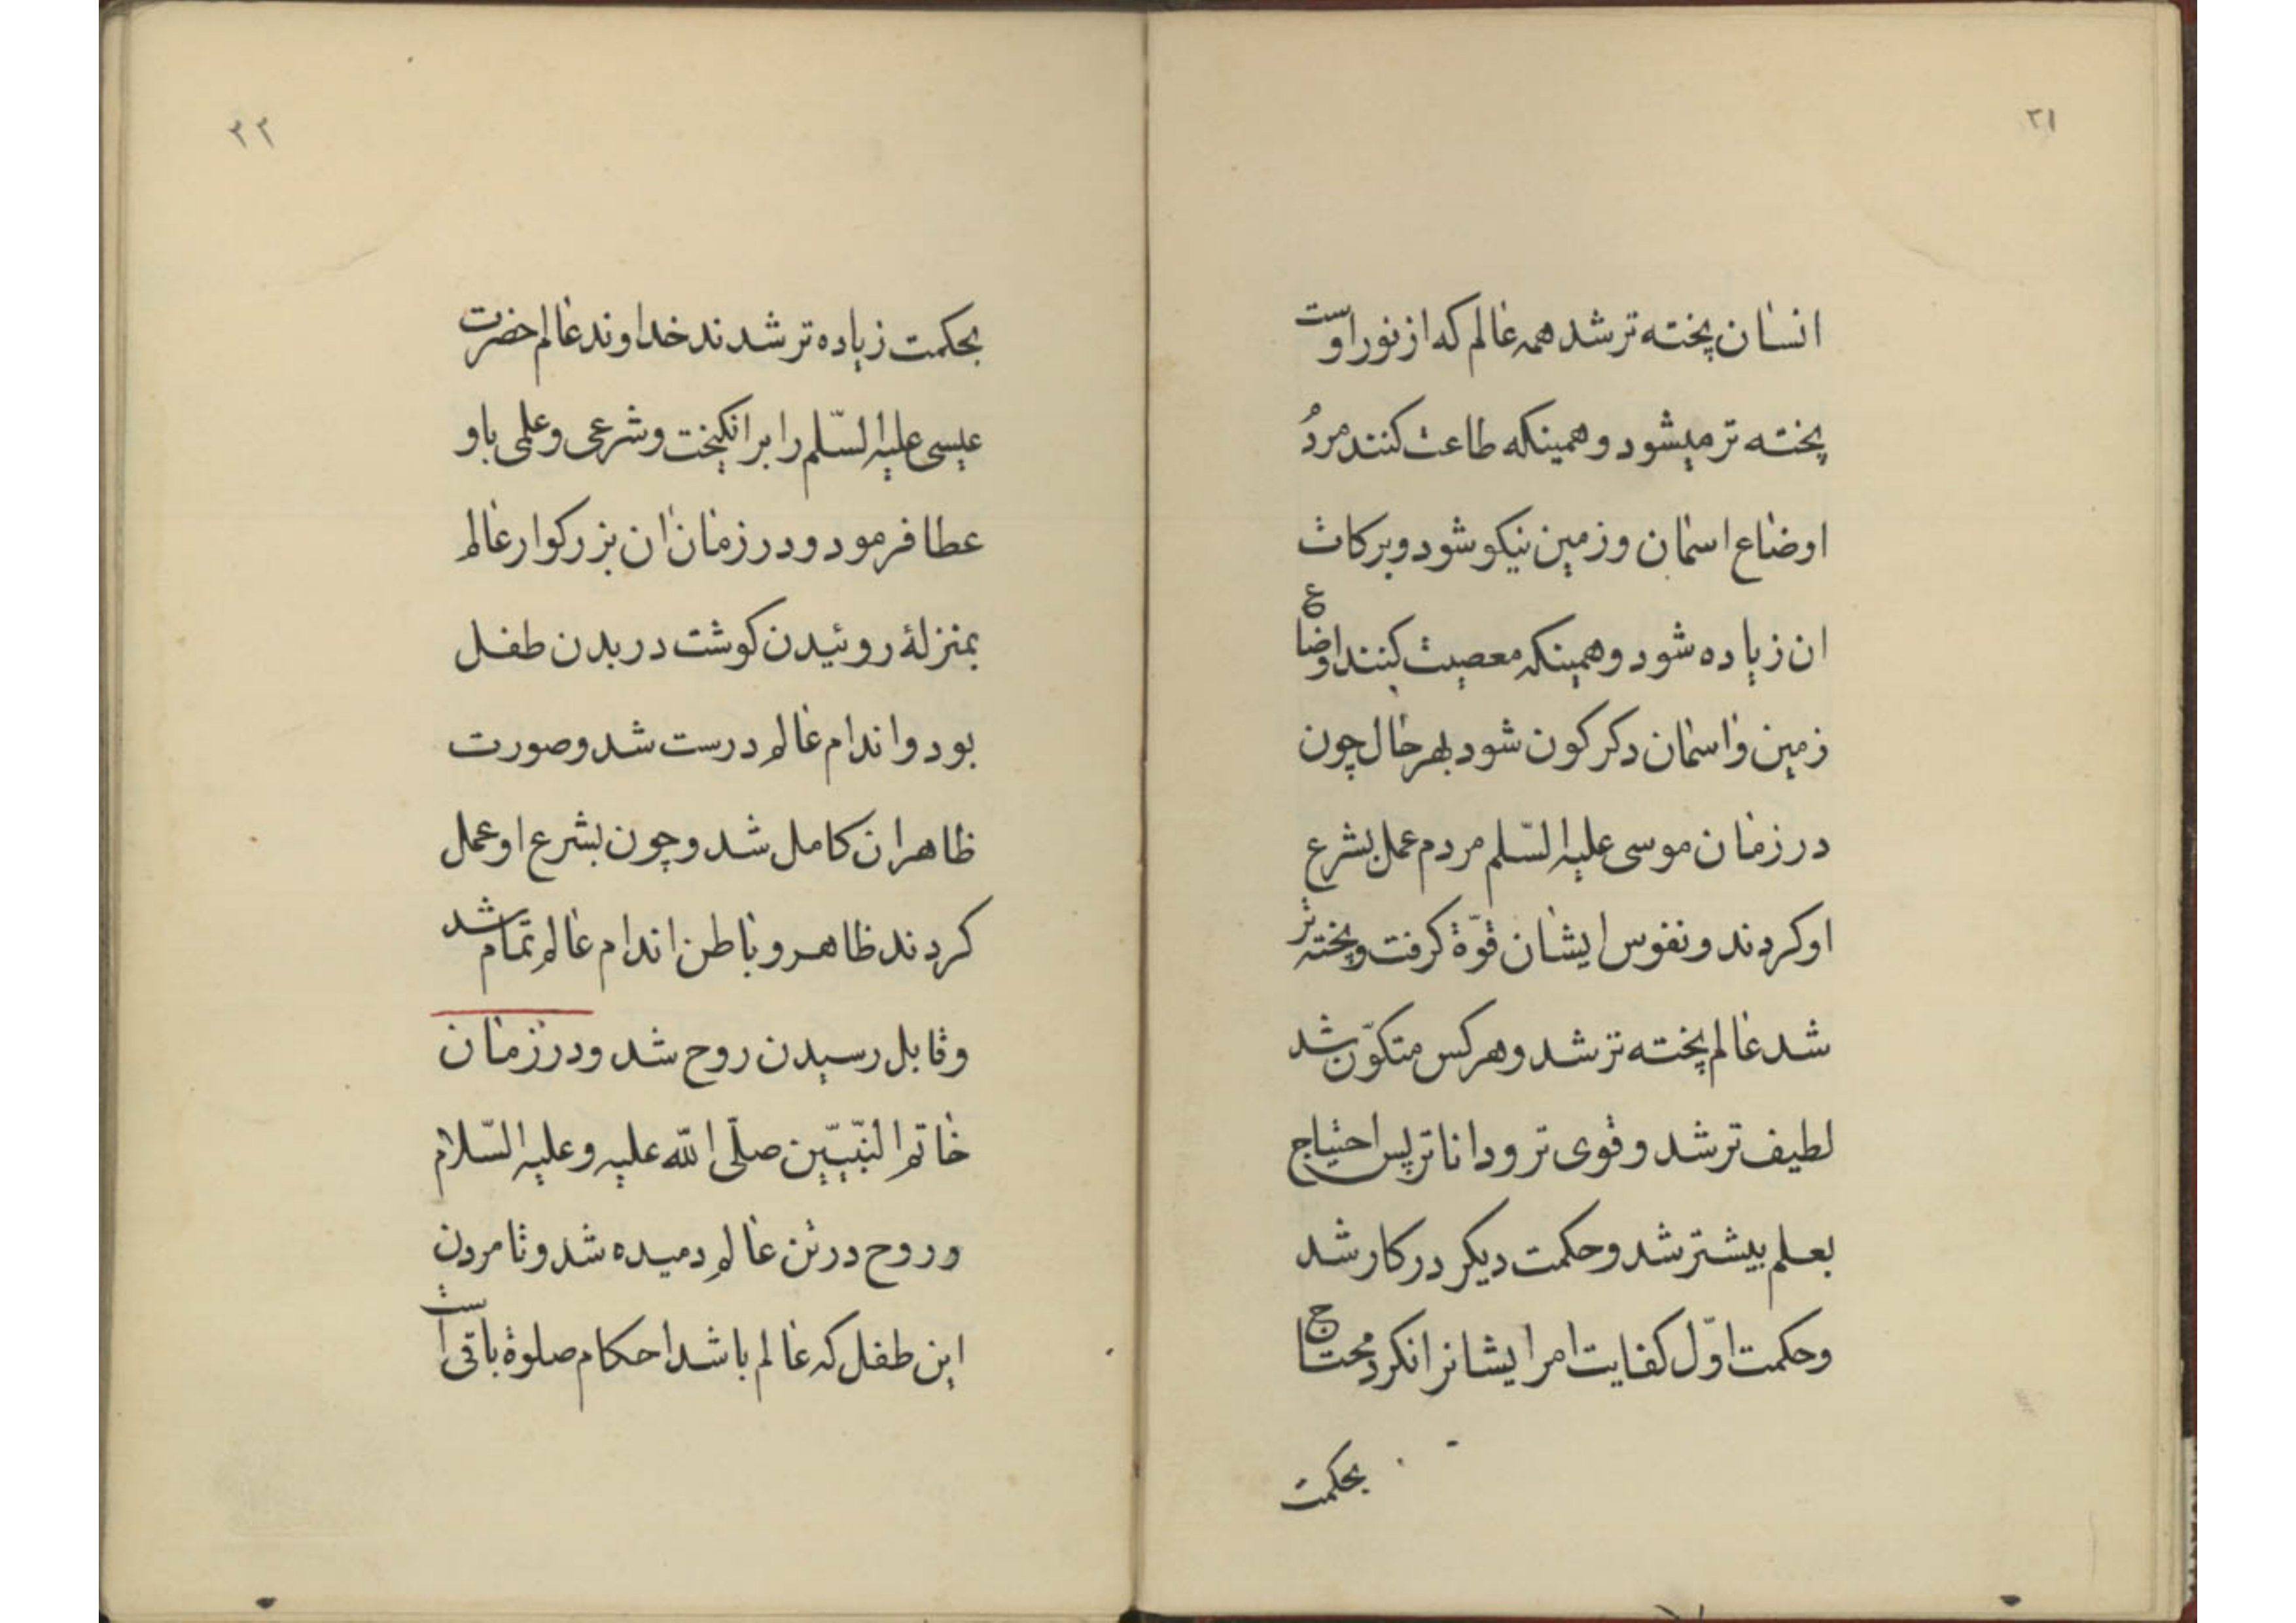 ۲۱
انسان پخته تر شد همه عالم که از نور اوست
پخته تر میشود و همینکه طاعت کنند مردُم
اوضاع اسمان و زمین نیکو شود و برکات
ان زیاده شود و همینکه معصیت کنند اوضاع
زمین و اسمان دکرکون شود بهر حال چون
در زمان موسی علیه السّلم مردم عمل بشرع
او کردند و نفوس ایشان قوّة کرفت و پخته تر
شد عالم پخته تر شد و هر کس متکوّن شد
لطیف تر شد و قوی تر و دانا تر پس احتیاج
بعلم بیشتر شد و حکمت دیکر در کار شد
و حکمت اوّل کفایت امر ایشانرا نکرد محتاج
بحکمت
۲۲
بحکمت زیاده تر شدند خداوند عالم حضرت
عیسی علیه السّلم را بر انکیخت و شرعی و علمی باو
عطا فرمود و در زمان ان بزرکوار عالم
بمنزلهٔ روئیدن کوشت در بدن طفل
بود و اندام عالم درست شد و صورت
ظاهر ان کامل شد و چون بشرع او عمل
کردند ظاهر و باطن اندام عالم تمام شد
و قابل رسیدن روح شد و در زمان
خاتم النبّیّین صلّی الله علیه و علیه السّلام
و روح در تن عالم دمیده شد و تا مردن
این طفل که عالم باشد احکام صلوة باقی است